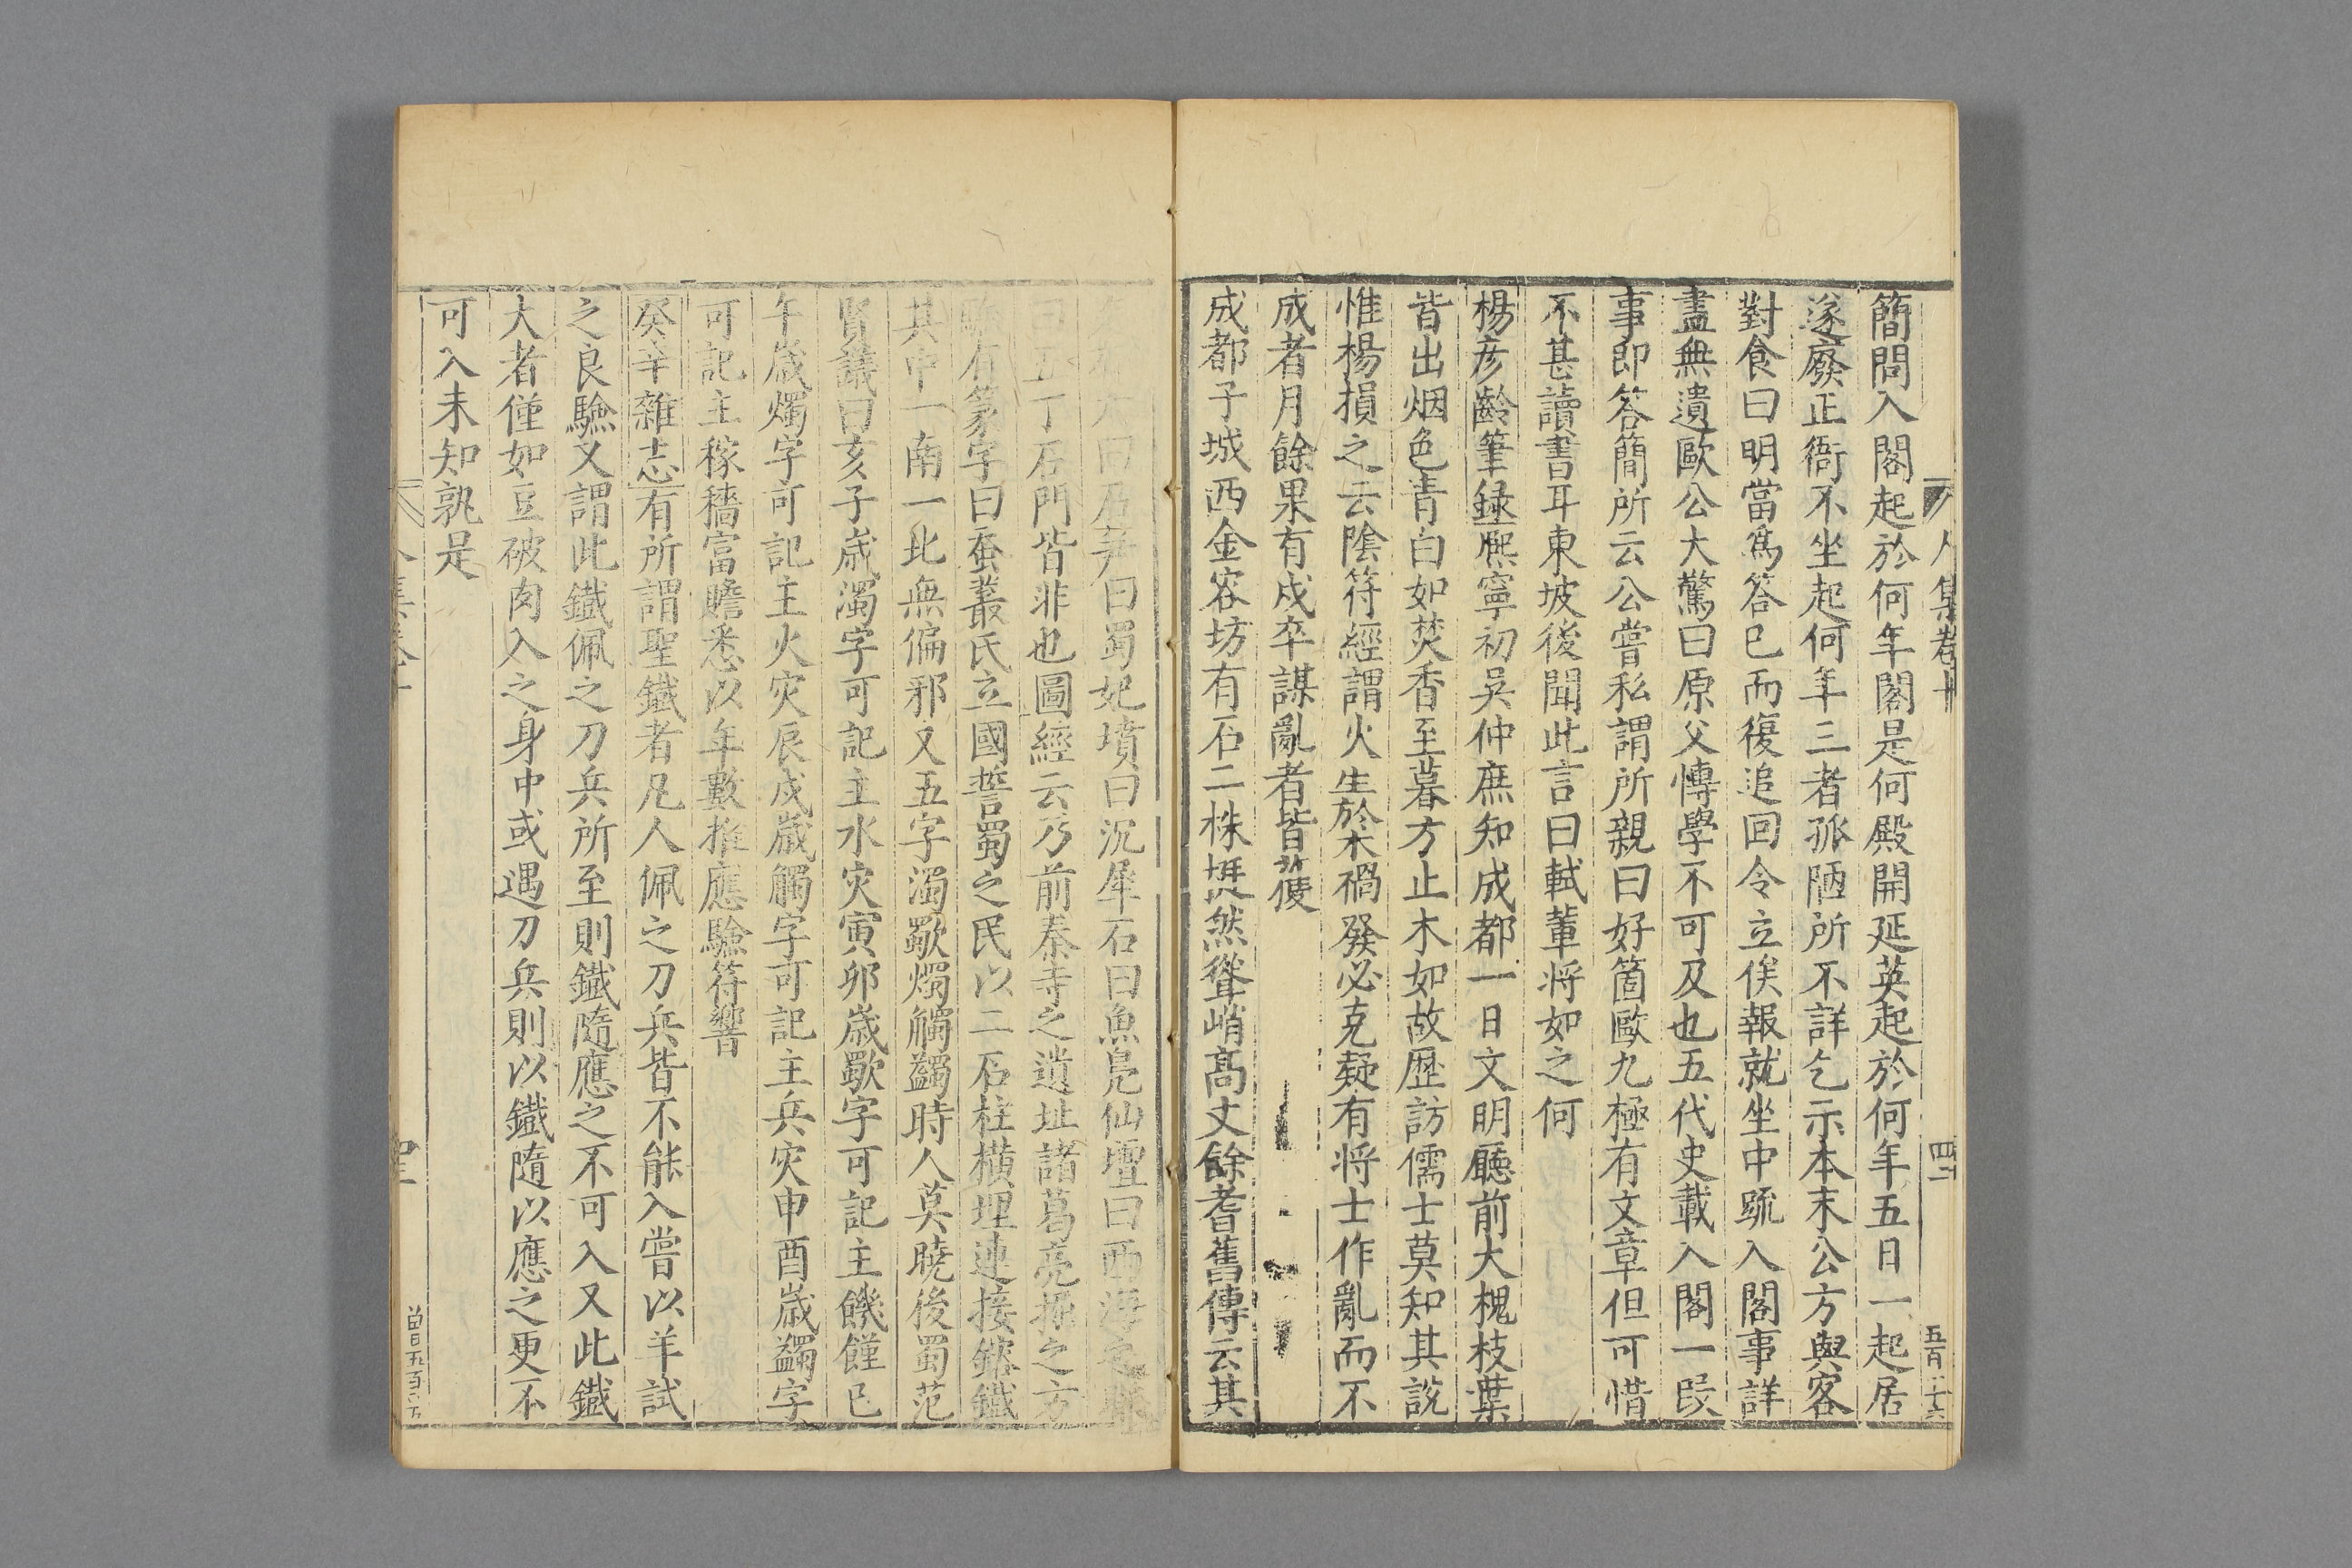 人集卷十
四二
簡問入閣起於何年閣是何殿開延英起於何年五日一起居
遂廢正衙不坐起何年三者孤陋所不詳乞示本末公方與客
對食曰明當爲答已而復追回令立俟報就坐中䟽入閣事詳
盡無遺歐公大驚曰原父愽學不可及也五代史載入閣一段
事即答簡所云公嘗私謂所親曰好箇歐九極有文章但可惜
不甚讀書耳東坡後聞此言曰軾軰将如之何
楊彦齡筆録熈寧初吳仲庶知成都一日文明廳前大槐枝葉
皆出烟色青白如焚香至暮方止木如故歷訪儒士莫知其説
惟楊損之云隂符經謂火生於木禍發必克疑有将士作亂而不
成者月餘果有戍卒謀亂者皆
成都子城西金容坊有石二株挺然聳峭髙丈餘耆舊傳云其
曰石笋曰蜀妃墳曰沉犀石曰魚鳬仙壇曰西海之眼
五丁石門皆非也圖經云乃前秦寺之遺址諸葛亮掘之方
有篆字曰蚕叢氏立國誓蜀之民以二石柱横埋連接鎔鐵
其中一南一北無偏邪又五字濁歜燭觸蠲時人莫曉後蜀范
賢議曰亥子歳濁字可記主水灾寅卯歳歜字可記主饑饉巳
午歳燭字可記主火灾辰戌歳觸字可記主兵灾申酉歳蠲字
可記主稼穡富贍悉以年數推應驗符響
癸辛雜志有所謂聖鐵者凡人佩之刀兵皆不能入嘗以羊試
之良驗又謂此鐵佩之刀兵所至則鐵隨應之不可入又此鐵
大者僅如豆破肉入之身中或遇刀兵則以鐵隨以應之更不
可入未知孰是